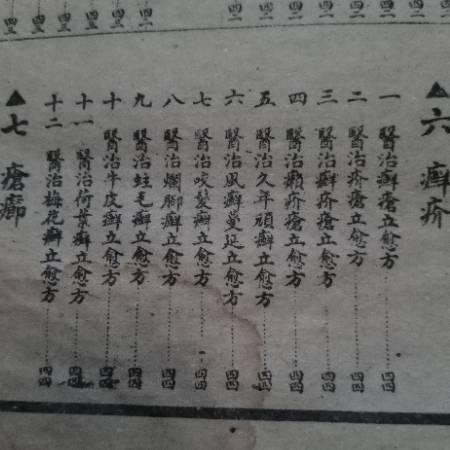 ▲六 癬疥
一 醫治癬瘡立愈方……四四
二 醫治疥瘡立愈方……四四
三 醫治癬疥瘡立愈方……四四
四 醫治癩疥瘡立愈方……四四
五 醫治久年頑癬立愈方……四四
六 醫治風癬蔓延立愈方……四四
七 醫治咬髮癬立愈方……四四
八 醫治爛腳癬立愈方……四四
九 醫治蛀毛癬立愈方……四四
十 醫治牛皮癬立愈方……四四
十一 醫治荷葉癬立愈方……四四
十二 醫治梅花癬立愈方……四四
▲七 瘡